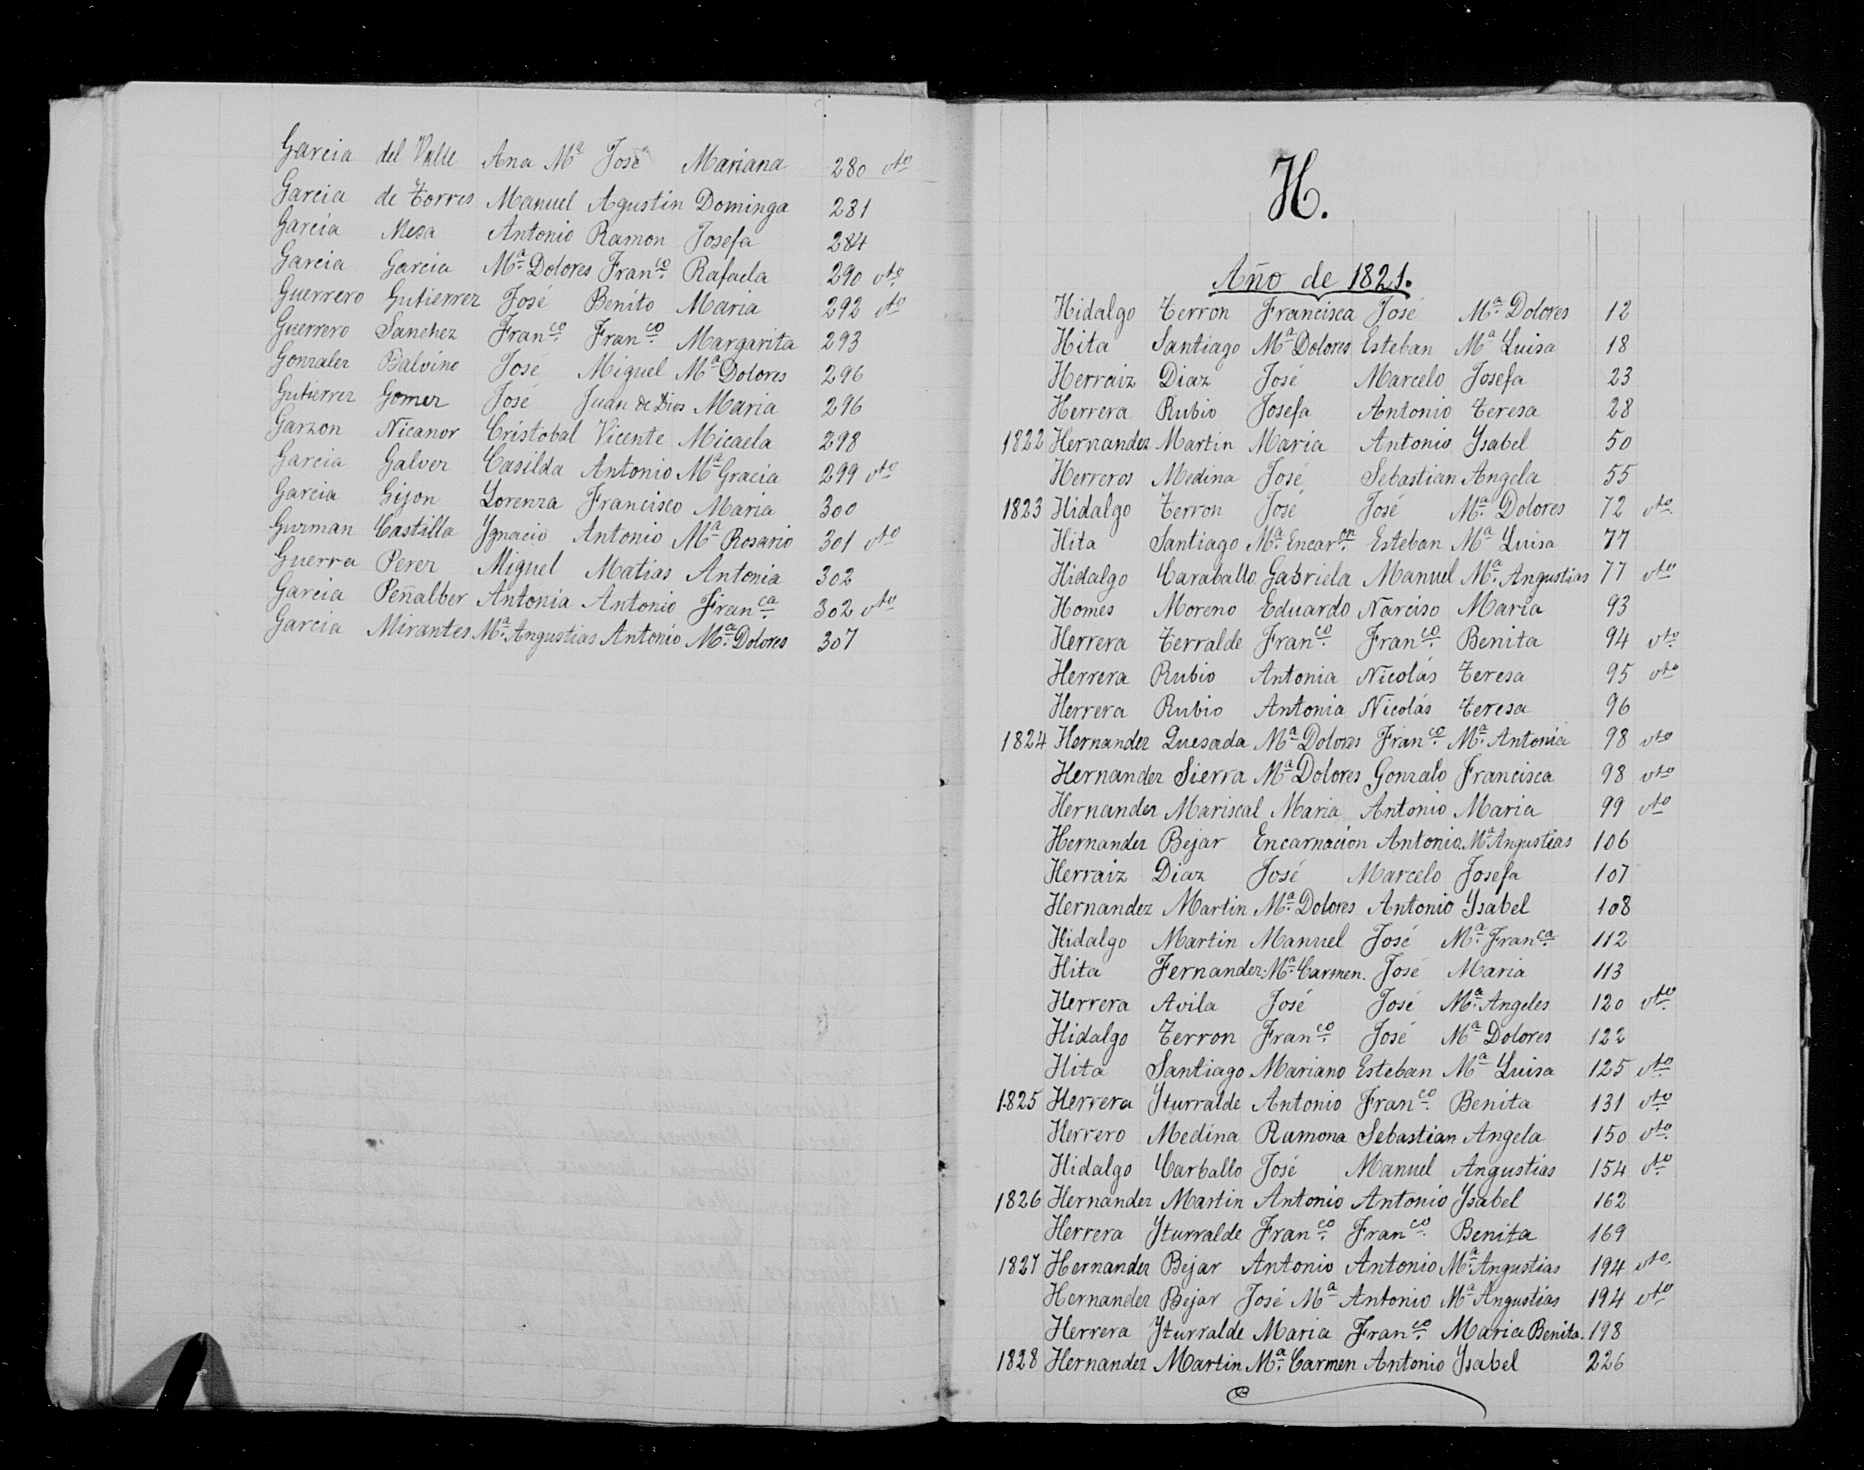 Garcia del Valle Ana Mª José Mariana 280 vto
Garcia de Torres Manuel Agustin Dominga 281
Garcia Mesa Antonio Ramon Josefa 284
Garcia Garcia Mª Dolores Franco Rafaela 290 vto
Guerrero Gutierrez José Benito Maria 292 vto
Guerrero Sanchez Franco Franco Margarita 293
Gonzalez Balvino José Miguel Mª Dolores 296
Gutierrez Gomez José Juan de Dios Maria 296
Garzon Nicanor Cristobal Vicente Micaela 298
Garcia Galvez Casilda Antonio Mª Gracia 299 vto
Garcia Gijon Lorenza Francisco Maria 300
Guzman Castilla Ygnacio Antonio Mª Rosario 301 vto
Guerra Perez Miguel Matias Antonia 302
Garcia Peñalber Antonia Antonio Franca 302 vto
Garcia Mirantes Mª Angustias Antonio Mª Dolores 307
H.
Año de 1821.
Hidalgo Terron Francisca José Mª Dolores 12
Hita Santiago Mª Dolores Esteban Mª Luisa 18
Herraiz Diaz José Marcelo Josefa 23
Herrera Rubio Josefa Antonio Teresa 28
1822 Hernandez Martin Maria Antonio Ysabel 50
Herreros Medina José Sebastian Angela 55
1823 Hidalgo Terron José José Mª Dolores 72 vto
Hita Santiago Mª Encaron Esteban Mª Luisa 77
Hidalgo Caraballo Gabriela Manuel Mª Angustias 77 vto
Homes Moreno Eduardo Narciso Maria 93
Herrera Terralde Franco Franco Benita 94 vto
Herrera Rubio Antonia Nicolás Teresa 95 vto
Herrera Rubio Antonia Nicolás Teresa 96
1824 Hernandez Quesada Mª Dolores Franco Mª Antonia 98 vto
Hernandez Sierra Mª Dolores Gonzalo Francisca 98 vto
Hernandez Mariscal Maria Antonio Maria 99 vto
Hernandez Bejar Encarnacion Antonio Mª Angustias 106
Herraiz Diaz José Marcelo Josefa 107
Hernandez Martin Mª Dolores Antonio Ysabel 108
Hidalgo Martin Manuel José Mª Franca 112
Hita Fernandez Mª Carmen. José Maria 113
Herrera Avila José José Mª Angeles 120 vto
Hidalgo Terron Franco José Mª Dolores 122
Hita Santiago Mariano Esteban Mª Luisa 125 vto
1825 Herrera Yturralde Antonio Franco Benita 131 vto
Herrero Medina Ramona Sebastian Angela 150 vto
Hidalgo Carballo José Manuel Angustias 154 vto
1826 Hernandez Martin Antonio Antonio Ysabel 162
Herrera Yturralde Franco Franco Benita 169
1827 Hernandez Bejar Antonio Antonio Mª Angustias 194 vto
Hernandez Bejar José Mª Antonio Mª Angustias 194 vto
Herrera Yturralde Maria Franco Maria Benita. 198
1828 Hernandez Martin Mª Carmen Antonio Ysabel 226